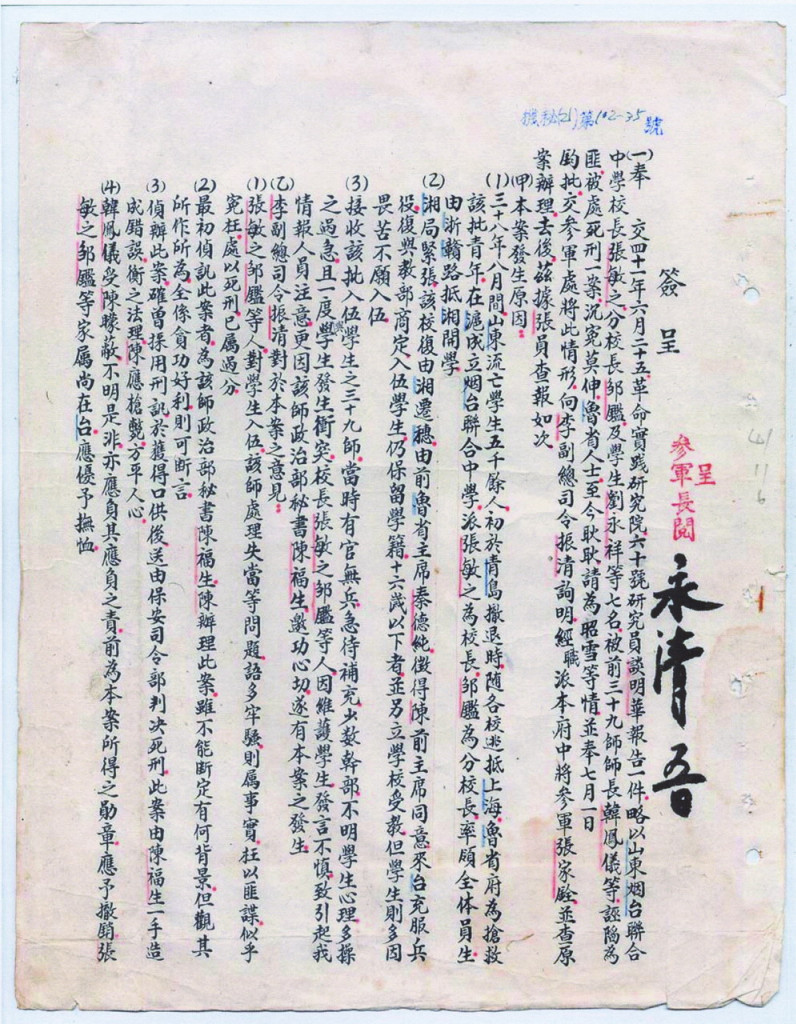 機秘(21)第102-35號
簽呈
呈
參軍長閱
(一)奉　交四十一年六月二十五革命實踐研究院六十號研究員談明華報告一件略以山東烟台聯合
中學校長張敏之分校長鄒鑑及學生劉永祥等七名被前三十九師師長韓鳳儀等誣陷為
匪被處死刑一案沉冤莫伸魯省人士至今耿耿請為昭雪等情並奉七月一日
鈞批交參軍處將此情形向李副總司令振清詢明經職派本府中將參軍張家銓並查原
案辦理去後茲據張員查報如次
(甲)本案發生原因：
(1)三十八年八月間山東流亡學生五千餘人初於青島撤退時隨各校逃抵上海魯省府為搶救
該批青年在滬成立烟台聯合中學派張敏之為校長鄒鑑為分校長率領全体員生
由浙贛路抵湘開學
(2)湘局緊張該校復由湘遷穗由前魯省主席秦德純徵得陳前主席同意來台充服兵
役復與教部商定入伍學生仍保留學籍十六歲以下者並另立學校受教但學生則多因
畏苦不願入伍
(3)接收該批入伍學生之三十九師當時有官無兵急待補充少數幹部不明學生心理多操
之過急且一度與學生發生衝突校長張敏之鄒鑑等人因維護學生發言不慎致引起我
情報人員注意更因該師政治部秘書陳福生邀功心切遂有本案之發生
(乙)李副總司令振清對於本案之意見：
(1)張敏之鄒鑑等人對學生入伍該師處理失當等問題諸多牢騷則屬事實枉以匪諜似乎
冤枉處以死刑已屬過分
(2)最初偵訊此案者為該師政治部秘書陳福生陳辦理此案雖不能斷定有何背景但觀其
所作所為全係貪功好利則可斷言
(3)偵辦此案確曾採用刑訊於獲得口供後送由保安司令部判決死刑此案由陳福生一手造
成錯誤衡之法理陳應槍斃方平人心
(4)韓鳳儀受陳矇蔽不明是非亦應負其應負之責前為本案所得之勛章應予撤銷張
敏之鄒鑑等家屬尚在台應優予撫恤